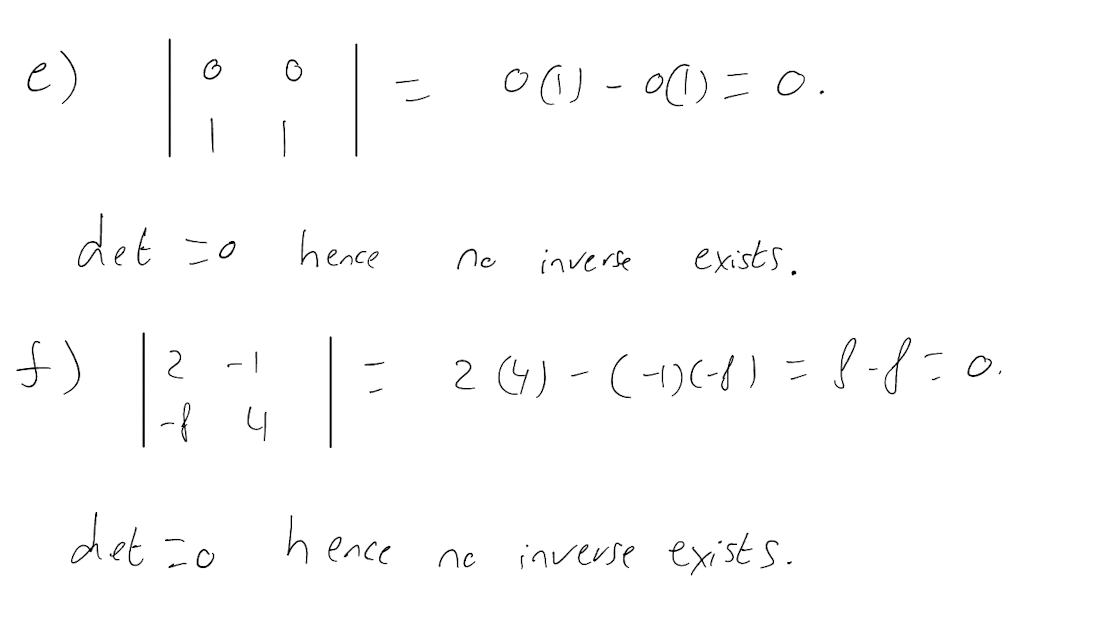 e) | 0 0 | = 0(1) - 0(1) = 0.
| 1 1 |
det = 0 hence no inverse exists.
f) | 2 -1 | = 2(4) - (-1)(-8) = 8 - 8 = 0.
| -8 4 |
det = 0 hence no inverse exists.